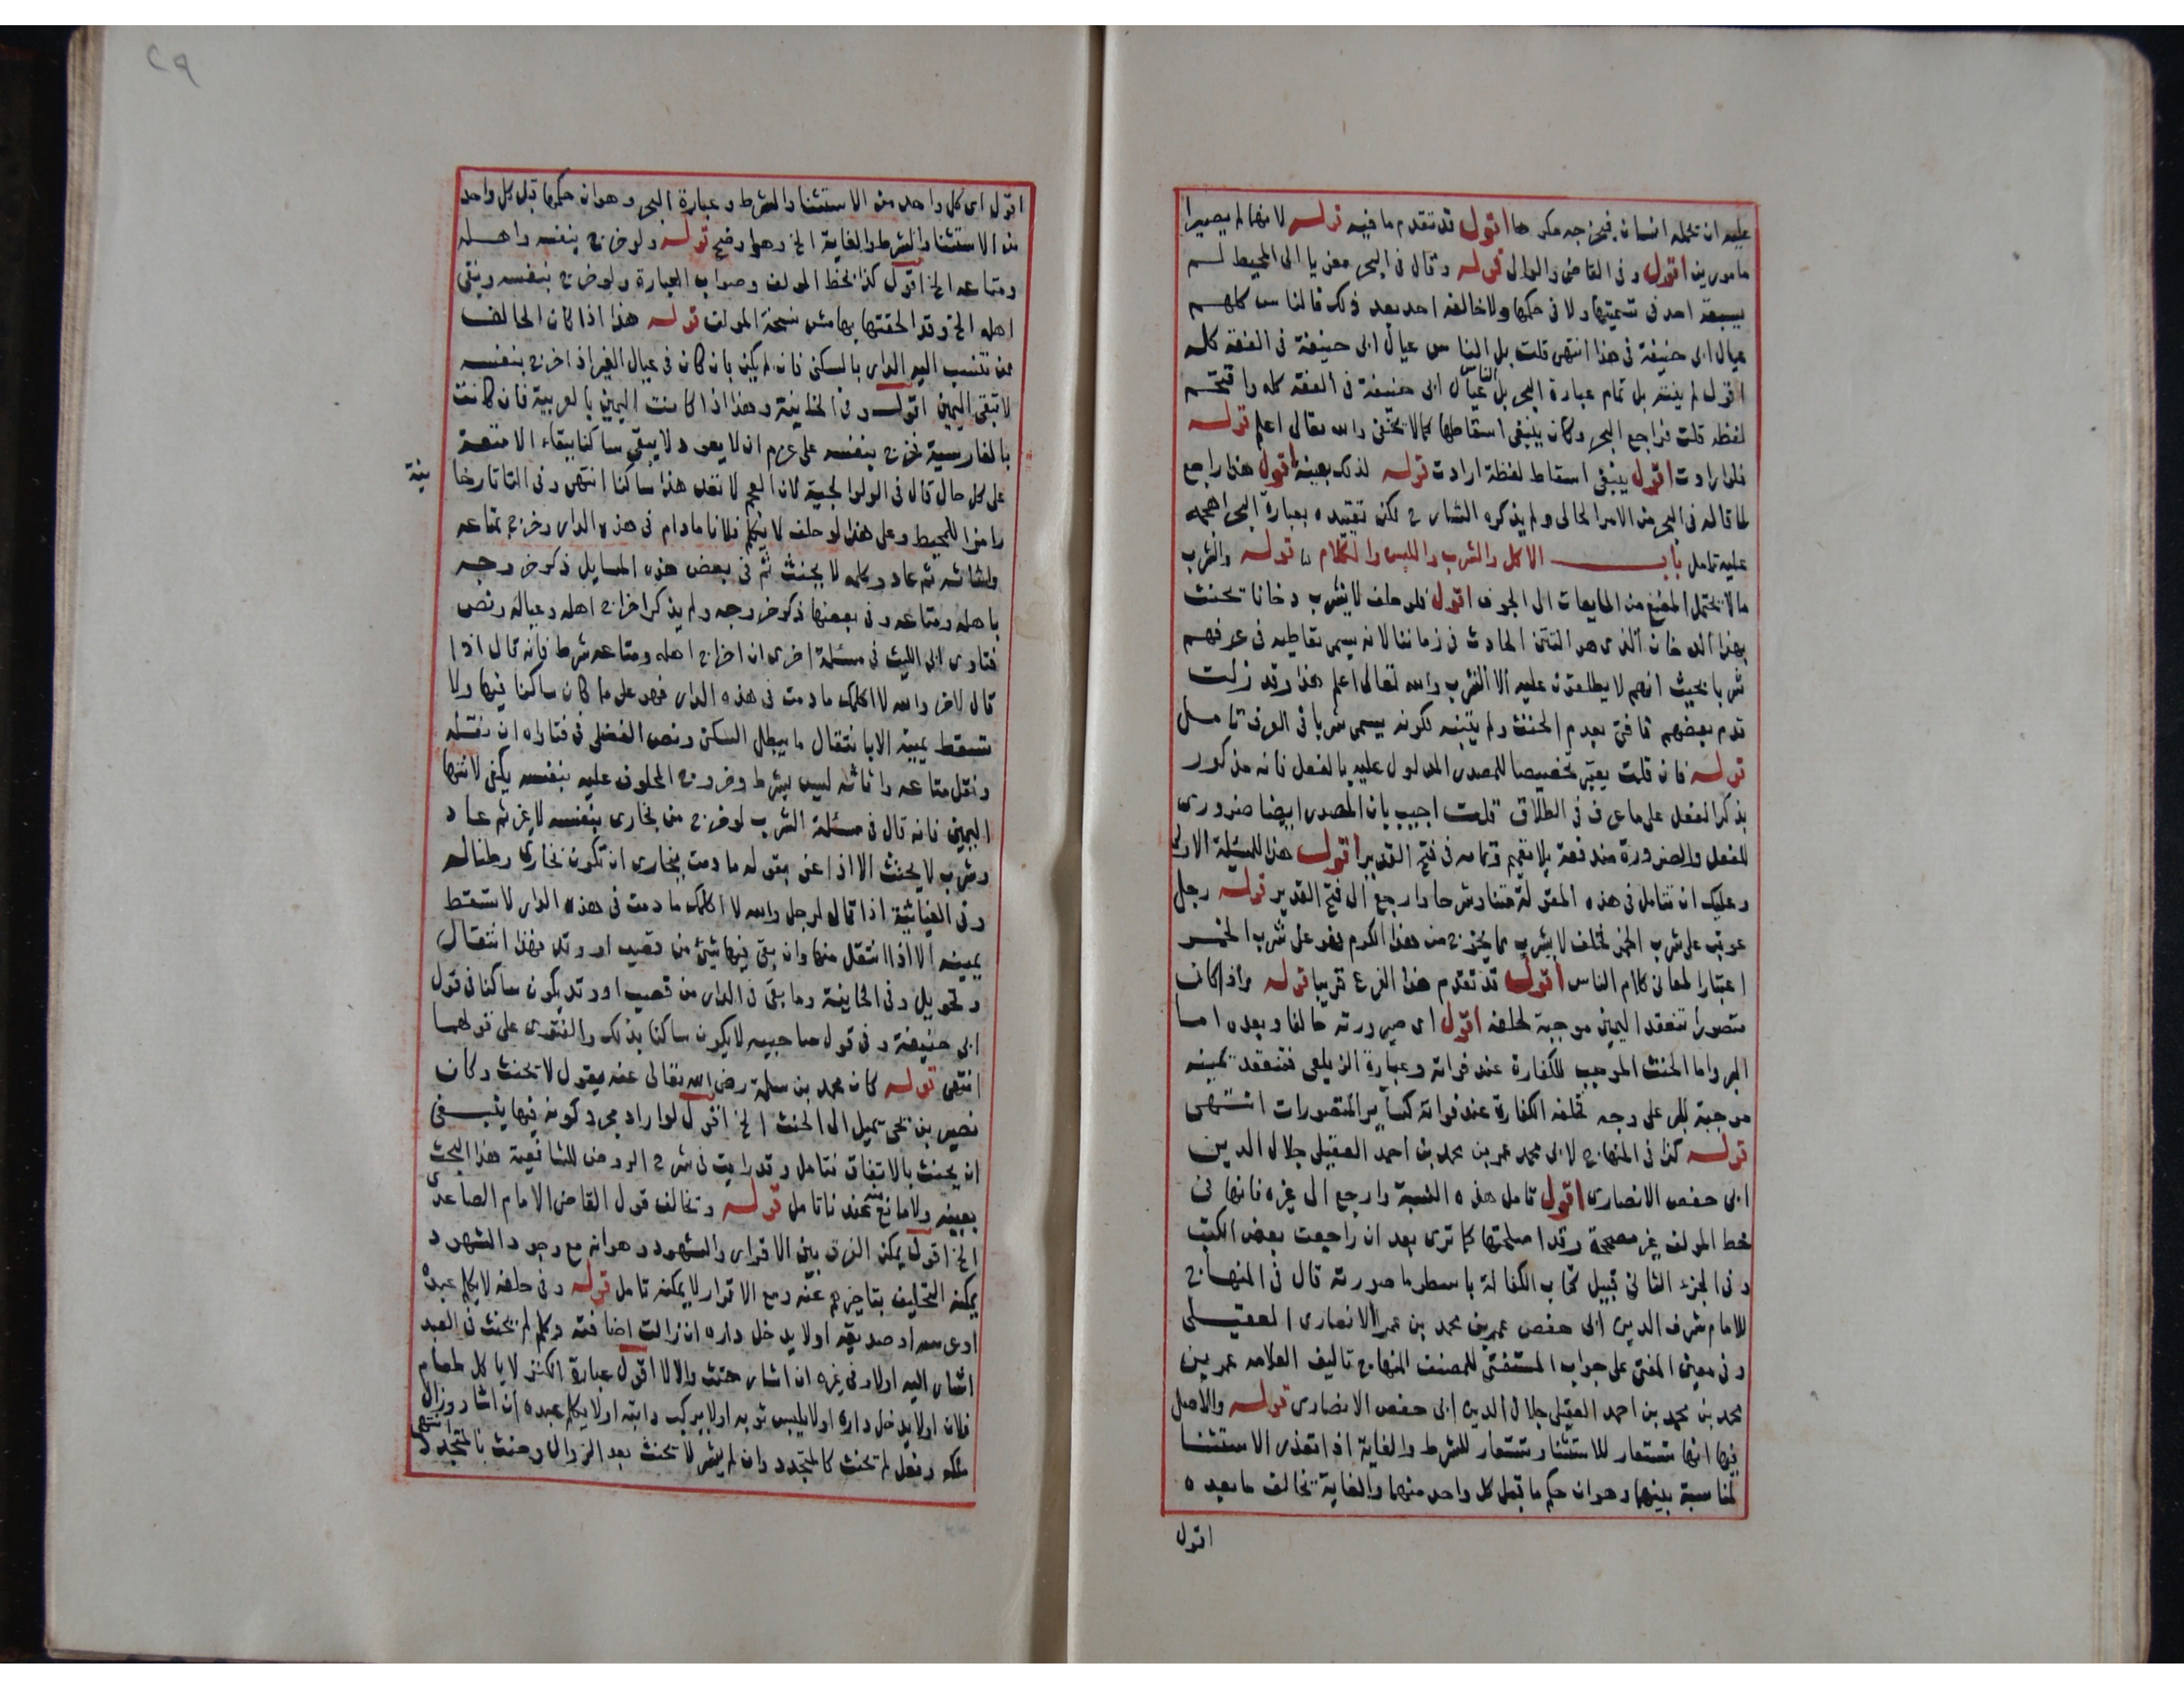 عليه ان تحمله انسان فيخرجه مكرها اقول قد تقدم ما فيه قوله لانهما لم يصيرا
مامورين اقول وفى القاضى والوالى قوله وقال فى البحر معزيا الى المحيط لم
يسبقه احد فى تسميتها ولا فى حكمها ولا خالفه احد بعد ذلك فالناس كلهم
عيال ابى حنيفة فى هذا انتهى قلت بل الناس عيال ابى حنيفة فى الفقه كله
اقول لم ينته بل تمام عبارة البحر بل الناس عيال ابى حنيفة فى الفقه كله وافتتحتم
لفظه قلت فراجع البحر وكان ينبغى اسقاطها كما لا يخفى والله تعالى اعلم قوله
فلو ارادت اقول ينبغى اسقاط لفظة ارادت قوله لذلك بعينه اقول هذا راجع
لما قاله فى البحر من الامر الحالى ولم يذكره الشارح لكن تقييده بعبارة البحر
عليه تامل باب الاكل والشرب واللبس والكلام قوله والشرب
ما لا يحتمل المضغ من المايعات الى الجوف اقول فلو حلف لا يشرب دخانا تحنث
بهذا الدخان الذى هو التتن الحادث فى زماننا لانه يسمى تعاطيه فى عرفهم
شربا بحيث انهم لا يطلقون عليه الا الشرب والله تعالى اعلم هذا وقد زلت
قدم بعضهم فافتى بعدم الحنث ولم يتنبه لكونه يسمى شربا فى العرف تامل
قوله فان قلت يعتبر تخصيصا للمصدر المدلول عليه بالفعل فانه مذكور
بذكر الفعل على ما عرف فى الطلاق قلت اجيب بان المصدر ايضا ضرورى
للفعل والضرورة مندفعة بلا تعميم وتمامه فى فتح القدير اقول هذا للمسئلة الاولى
وعليك ان تتامل فى هذه المقولة متنا وشرحا وارجع الى فتح القدير قوله رجل
عوتب على شرب الخمر فحلف لا يشرب مما يخرج من هذا الكرم فهو على شرب الخمر
اعتبارا لمعانى كلام الناس اقول قد تقدم هذا الفرع قريبا قوله واذا كان
متصورا تنعقد اليمين موجبة لحلفه اقول اى صيرورته حالفا وبعده اما
البر واما الحنث الموجب للكفارة عند فواته وعبارة الزيلعى فتنعقد يمينه
موجبة للبر على وجه تخلفه الكفارة عند فواته كساير المتصورات انتهى
قوله كذا فى المنهاج لابى محمد عمر بن محمد بن احمد العقيلى جلال الدين
ابى حفص الانصارى اقول تامل هذه النسبة وارجع الى غيره فانها فى
خط المولف غير مصححة وقد اصلحتها كما ترى بعد ان راجعت بعض الكتب
وفى الجزء الثانى قبيل كتاب الكفالة باسطر ما صورته قال فى المنهاج
للامام شرف الدين ابى حفص عمر بن محمد بن عمر الانصارى العقيلى
وفى معين المفتى على جواب المستفتى للمصنف المنهاج تاليف العلامه عمر بن
محمد بن محمد بن احمد العقيلى جلال الدين ابى حفص الانصارى قوله والاصل
فيها انها تستعار للاستثنا وتستعار للشرط والغاية اذا تعذر الاستثنا
لمناسبة بينهما وهو ان حكم ما قبل كل واحد منهما والغاية تخالف ما بعده
اقول
٢٩
اقول اى كل واحد من الاستثنا والشرط وعبارة البحر وهو ان حكمها قبل كل واحد
من الاستثنا والشرط والغاية الخ وهو اوضح قوله ولو خرج بنفسه واهله
ومتاعه الخ اقول كذا بخط المولف وصواب العبارة ولو خرج بنفسه وبقى
اهله الخ وقد الحقتها بهامش نسخة المولف قوله هذا اذا كان الحالف
ممن تنتسب اليه الدار بالسكنى فان لم يكن بان كان فى عيال الغير اذا خرج بنفسه
لا تبقى اليمين اقول وفى الخانية وهذا اذا كانت اليمين بالعربية فان كانت
بالفارسية فخرج بنفسه على عزم ان لا يعود لا يبقى ساكنا ببقاء الامتعة
نية
على كل حال قال فى الولوالجية لان العجم لا تعد هذا ساكنا انتهى وفى التاتارخا
رامزا للمحيط وعلى هذا لو حلف لا يكلم فلانا مادام فى هذه الدار وخرج بمتاعه
واثاثه ثم عاد وكلمه لا يحنث ثم فى بعض هذه المسايل ذكر خروجه
باهله ومتاعه وفى بعضها ذكر خروجه ولم يذكر اخراج اهله وعياله ونص
فتاوى ابى الليث فى مسئلة اخرى ان اخراج اهله ومتاعه شرط فانه قال اذا
قال لاخر والله لا اكلمك ما دمت فى هذه الدار فهو على ما كان ساكنا فيها ولا
تسقط يمينه الا بانتقال ما يبطل السكن ونص الفضلى فى فتاواه ان نقله
ونقل متاعه واثاثه ليس بشرط وخروج المحلوف عليه بنفسه يكفى لانتها
اليمين فانه قال فى مسئلة الشرب لو خرج من بخارى بنفسه لا غير ثم عاد
وشرب لا يحنث الا اذا عنى بقوله ما دمت ببخارى ان تكون بخارى وطنا له
وفى الغياثية اذا قال لرجل والله لا اكلمك ما دمت فى هذه الدار لا تسقط
يمينه الا اذا انتقل منها وان بقى فيها شيئ من قصب او وتد فهذا انتقال
وتحويل وفى الخانية وما بقى فى الدار من قصب او وتد يكون ساكنا فى قول
ابى حنيفة وفى قول صاحبيه لا يكون ساكنا بذلك والفتوى على قولهما
انتهى قوله كان محمد بن سلمة رضى الله تعالى عنه يقول لا تحنث وكان
نصير بن يحى يميل الى الحنث الخ اقول لو اراد مجرد كونه فيها ينبغى
ان يحنث بالاتفاق تتامل وقد رايت فى شرح الروض للشافعية هذا البحث
بعينه ولا مانع منه عندنا تامل قوله وتخالف قول القاضى الامام الصاعدى
الخ اقول يمكن الفرق بين الاقرار والشهود وهو انه مع وجود الشهود
يمكنه التحليف بتاخرهم عنه ومع الاقرار لا يمكنه تامل قوله وفى حلفه لا يكلم عبده
او عرسه او صديقه او لا يدخل داره ان زالت اضافته وكلم لم يحنث فى العبد
اشار اليه اولا وفى غيره ان اشار حنث والا لا اقول عبارة الكنز لا ياكل طعام
فلان او لا يدخل داره او لا يلبس ثوبه او لا يركب دابته او لا يكلم عبده ان اشار وزال
ملكه وفعل لم تحنث كالمتجدد وان لم يشر لا تحنث بعد الزوال وحنث بالمتجدد انتهى